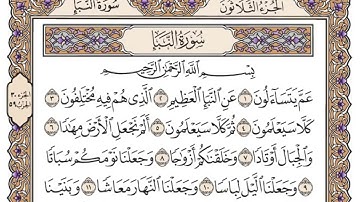 الجزء الثلاثون
سورة النبإ
سُورَةُ النَّبَإِ
بِسْمِ اللَّهِ الرَّحْمَٰنِ الرَّحِيمِ
عَمَّ يَتَسَاءَلُونَ ١ عَنِ النَّبَإِ الْعَظِيمِ ٢ الَّذِي هُمْ فِيهِ مُخْتَلِفُونَ ٣
كَلَّا سَيَعْلَمُونَ ٤ ثُمَّ كَلَّا سَيَعْلَمُونَ ٥ أَلَمْ نَجْعَلِ الْأَرْضَ مِهَادًا ٦
وَالْجِبَالَ أَوْتَادًا ٧ وَخَلَقْنَاكُمْ أَزْوَاجًا ٨ وَجَعَلْنَا نَوْمَكُمْ سُبَاتًا
٩ وَجَعَلْنَا اللَّيْلَ لِبَاسًا ١٠ وَجَعَلْنَا النَّهَارَ مَعَاشًا ١١ وَبَنَيْنَا